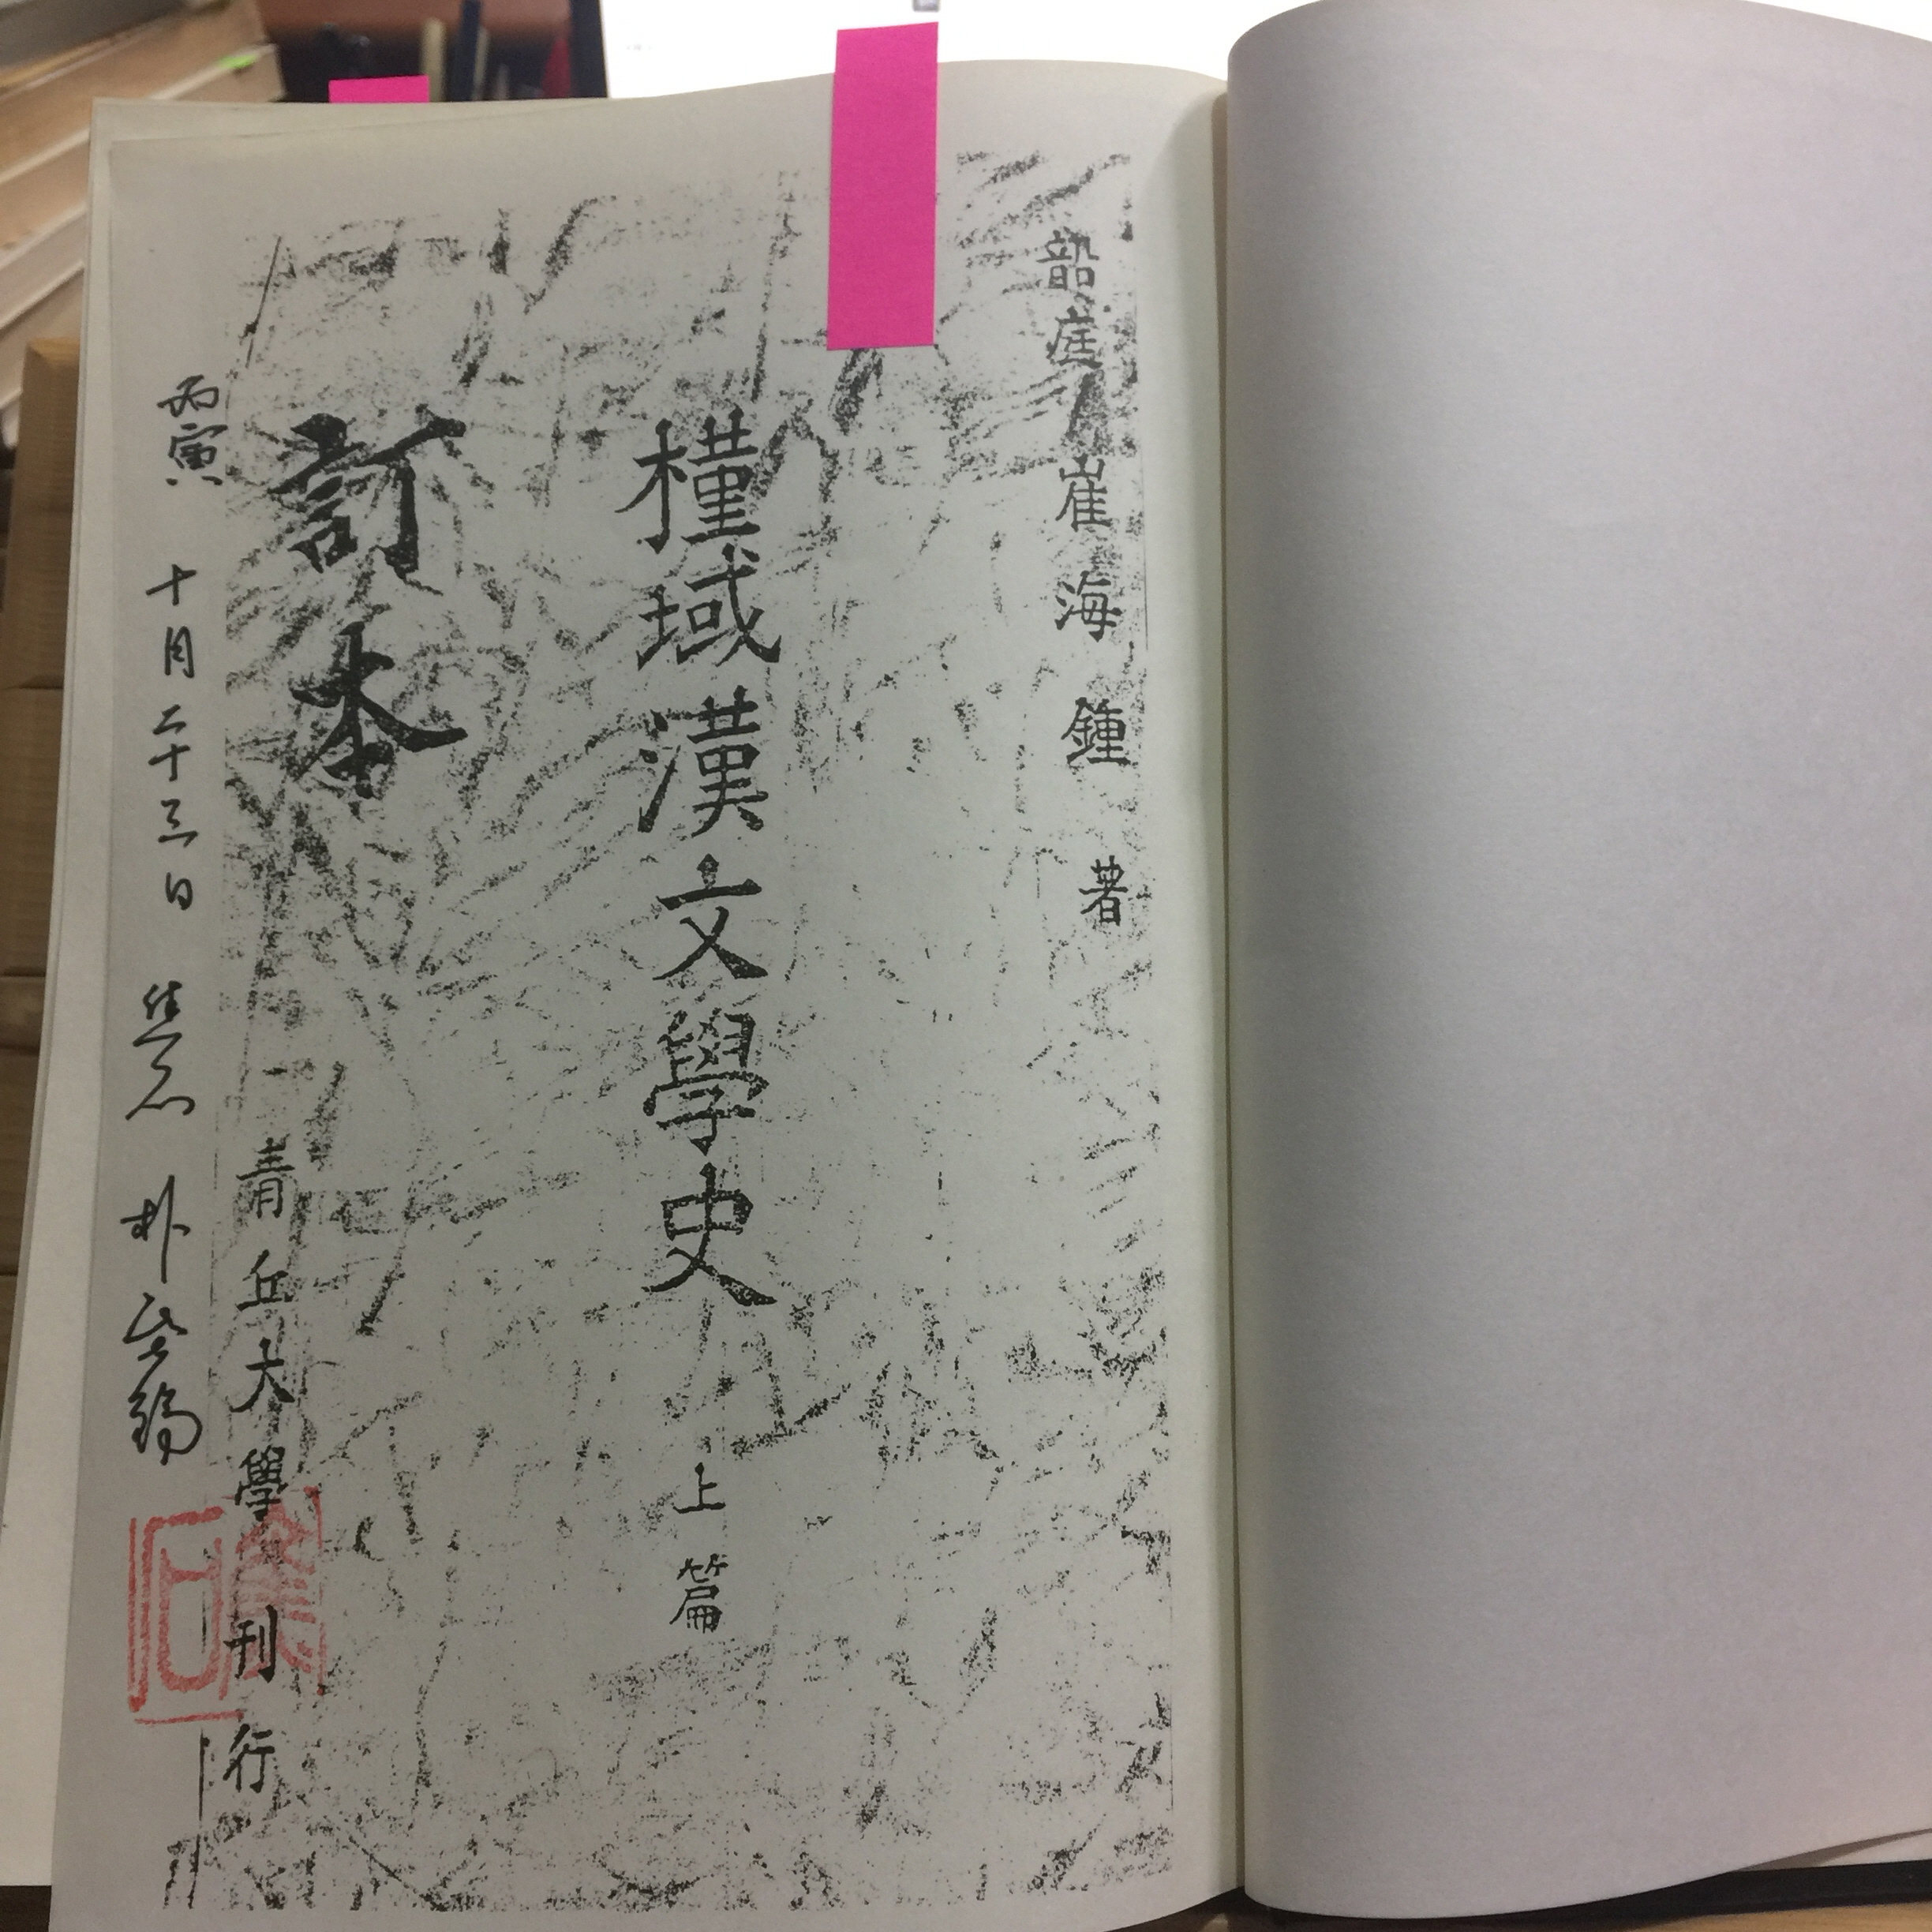 韶庭 崔海鍾 著
槿域漢文學史 上篇
訂本
靑丘大學刊行
丙寅 十月二十三日 焦石 朴